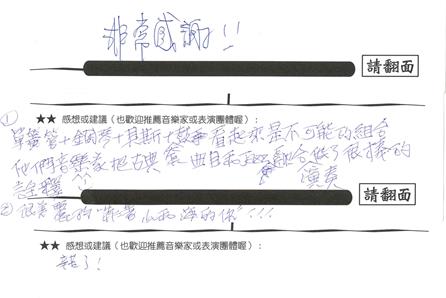 非常感謝!!
請翻面
★★ 感想或建議(也歡迎推薦音樂家或表演團體喔):
① 單簧管+鋼琴+貝斯+鼓 看起來是不可能的組合
他們音樂家把古典 曲目和 融合做了很棒的
詮釋 演奏
請翻面
② 很喜歡 的你!!!
★★ 感想或建議(也歡迎推薦音樂家或表演團體喔):
辛苦了!